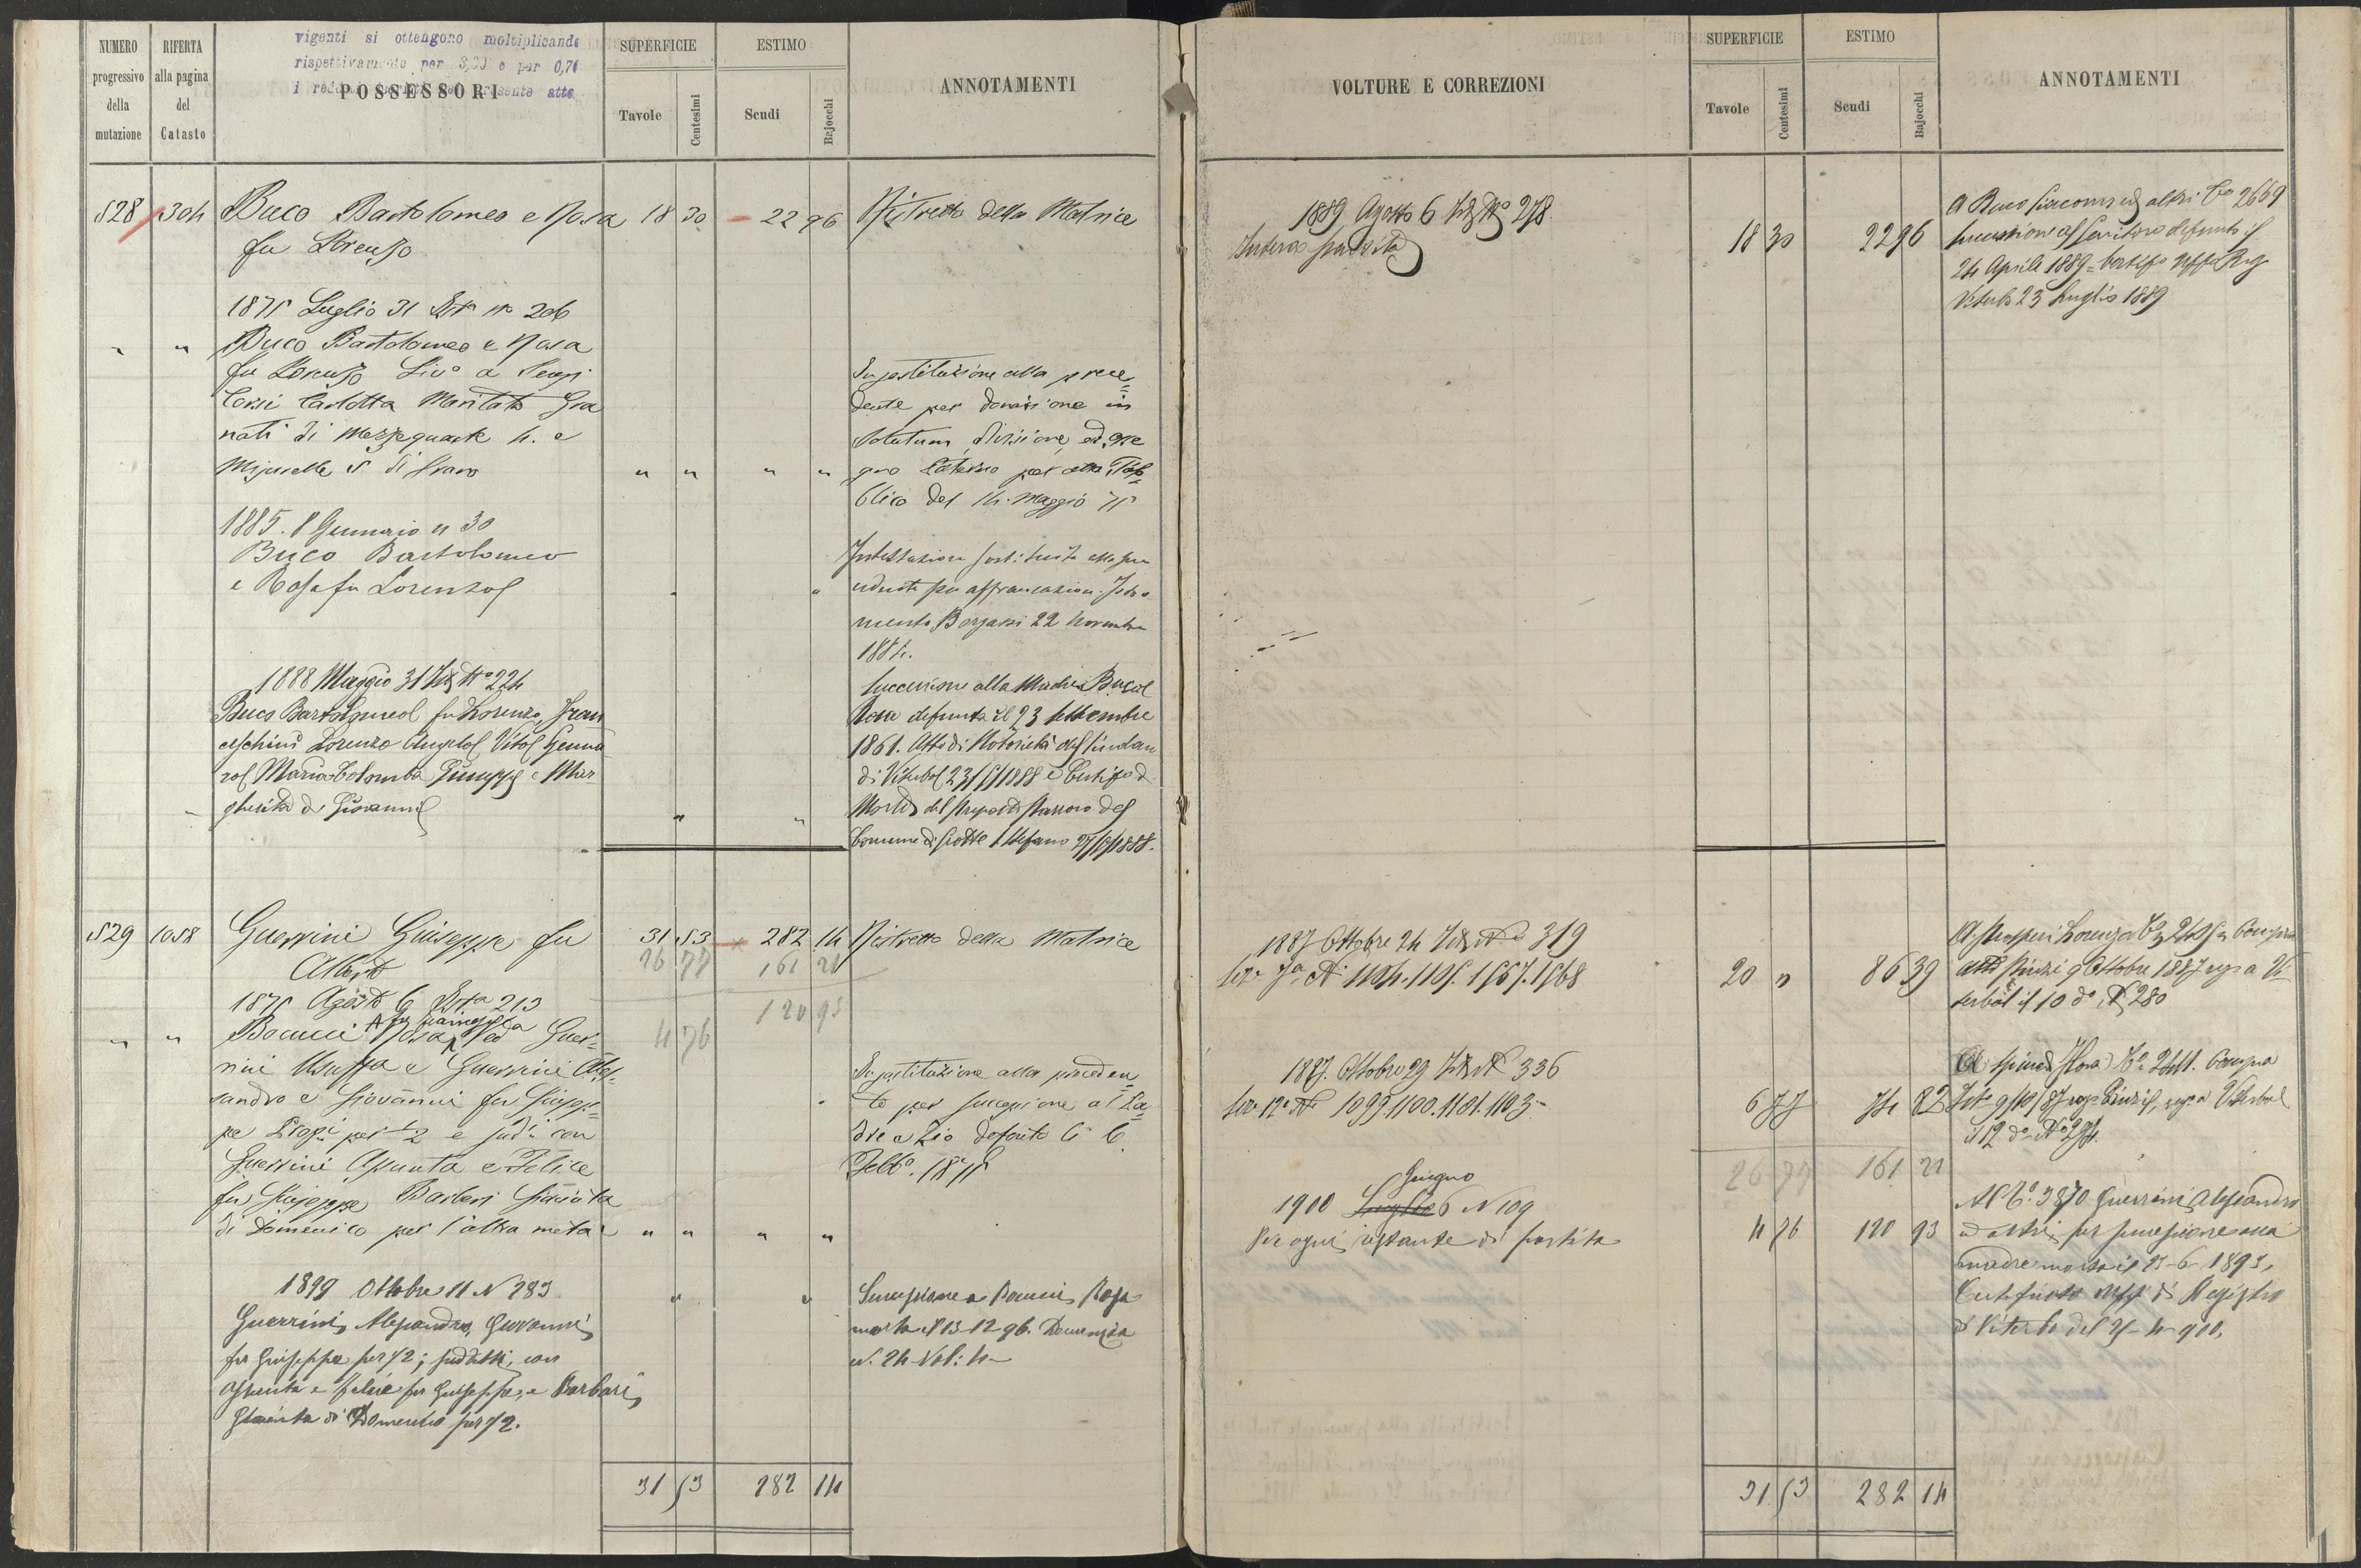 NUMERO progressivo della mutazione
RIFERTA alla pagina del Catasto
vigenti si ottengono moltiplicando
rispettivamente per e per 0,70
POSSESSORI
SUPERFICIE
Tavole
Centesimi
ESTIMO
Scudi
Bajocchi
ANNOTAMENTI
528 304 Buco Bartolomeo e Rosa 18 30 22 96 Ristretto della Matrice
fu Lorenzo
1875 Luglio 31 N° 206
" " Buco Bartolomeo e Rosa
fu Lorenzo Liv° a
Corsi Carlotta Maritata Gra
nati di
di Grano " " " "
Sostituzione alla prece=
dente per donazione in
solutum, divisione, ed asse
gno per atto Pub=
blico del 14. Maggio 75
1885. 8 Gennaio n 30
Buco Bartolomeo
e Rosa fu Lorenzo
Intestazione sostituita alla pre
cedente per affrancazione. Istro
mento Borgassi 22 Novembre
1884.
1888 Maggio 31 N° 224
Buco Bartolomeo fu Lorenzo, Fran
ceschini Lorenzo Angelo Vito Genna
ro Maria Colomba Giuseppe e Mar-
gherita di Giovanni
Successione alla Madre Buco
Rosa defunta il 23 Settembre
1861. Atto di Notorietà del Sindaco
di Viterbo 23/5/1888 e Certif° di
Morte del Parroco del
Comune di Grotte S. Stefano 27/5/1888.
529 1058 Guerrini Giuseppe fu 31 53 282 14 Ristretto della Matrice
Alberto 26 77 161 21
1875 Agosto 6 Nota 213
120 93
4 76
" " Bocucci Rosa Ved Guer=
rini Usuf° e Guerrini Ales-
sandro e Giovanni fu Giusep=
pe Prop¹ per 1/2 e sud¹ con
Guerrini Assunta e Felice
fu Giuseppe Barberi Giacinta
di Domenico per l'altra metà " " " "
Sostituzione alla preceden=
te per successione al Pa=
dre e Zio defunto li 6
Febb°. 1875
1899 Ottobre 11 N 283
Guerrini Alessandro, Giovanni
fu Giuseppe per 1/2; suddetti, con
Assunta e Felice fu Giuseppe, e Barbari
Giacinta di Domenico per 1/2.
Successione a Bocucci Rosa
morta il 13-12-96. Denunzia
N. 24 Vol: 4
31 53 282 14
VOLTURE E CORREZIONI
SUPERFICIE
Tavole
Centesimi
ESTIMO
Scudi
Bajocchi
ANNOTAMENTI
1889 Agosto 6 N° 278
Intera partita 18 30 22 96
A Buco Giacomo ed altri C° 2669
Successione al Genitore defunto il
24 Aprile 1889 = Certif° Uff° Reg°
Viterbo 23 Luglio 1889
1887 Ottobre 24 N° 319
Sez° 7a N¹ 1104. 1105. 1567. 1568 20 " 86 39
Lorenzo Compra
atto Pinzi 9 Ottobre 1887 reg° a Vi=
terbo il 10 d° N° 280
1887. Ottobre 29 N° 336
Sez° 12a N¹ 1099. 1100. 1101. 1103 = 6 77 74 82
Rosa Compra
9/10/87 rog° Pinzi, reg° a Viterbo
il 12 d° N°
26 77 161 21
Giugno
1900 Luglio 6 N 109
Per ogni restante di partita 4 76 120 93
Al C°. 3870 Guerrini Alessandro
ed altri per successione alla
madre morta il
Certificato Uff° di Registro
di Viterbo del
31 53 282 14